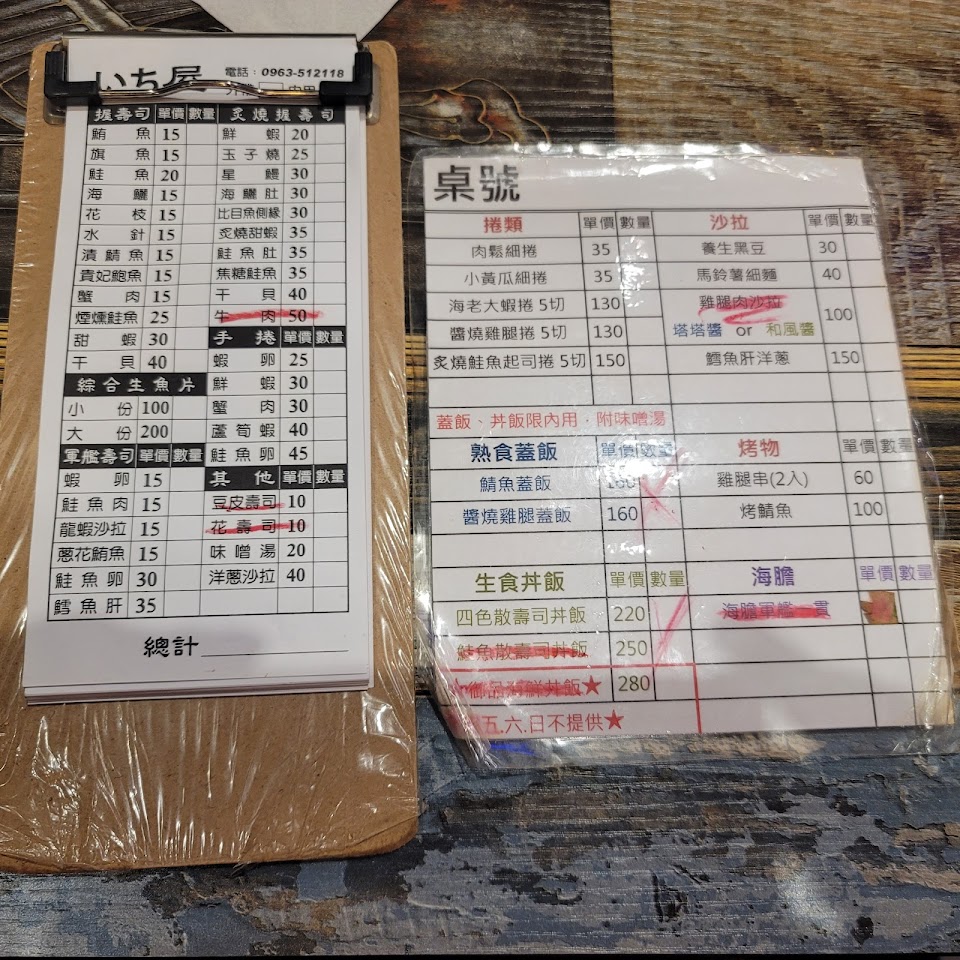 いち屋
電話：0963-512118
握壽司 單價 數量
鮪魚 15
旗魚 15
鮭魚 20
海鱺 15
花枝 15
水針 15
漬鯖魚 15
貴妃鮑魚 15
蟹肉 15
煙燻鮭魚 25
甜蝦 30
干貝 40
綜合生魚片
小份 100
大份 200
軍艦壽司 單價 數量
蝦卵 15
鮭魚肉 15
龍蝦沙拉 15
蔥花鮪魚 15
鮭魚卵 30
鱈魚肝 35
炙燒握壽司
鮮蝦 20
玉子燒 25
星鰻 30
海鱺肚 30
比目魚側緣 30
炙燒甜蝦 35
鮭魚肚 35
焦糖鮭魚 35
干貝 40
牛肉 50
手捲 單價 數量
蝦卵 25
鮮蝦 30
蟹肉 30
蘆筍蝦 40
鮭魚卵 45
其他 單價 數量
豆皮壽司 10
花壽司 10
味噌湯 20
洋蔥沙拉 40
總計
桌號
捲類 單價 數量
肉鬆細捲 35
小黃瓜細捲 35
海老大蝦捲 5切 130
醬燒雞腿捲 5切 130
炙燒鮭魚起司捲 5切 150
沙拉 單價 數量
養生黑豆 30
馬鈴薯細麵 40
雞腿肉沙拉 100
塔塔醬 or 和風醬
鱈魚肝洋蔥 150
蓋飯、丼飯限內用，附味噌湯
熟食蓋飯 單價 數量
鯖魚蓋飯 160
醬燒雞腿蓋飯 160
烤物 單價 數量
雞腿串(2入) 60
烤鯖魚 100
生食丼飯 單價 數量
四色散壽司丼飯 220
鮭魚散壽司丼飯 250
丼飯★ 280
五.六.日不提供★
海膽 單價 數量
海膽軍艦一貫